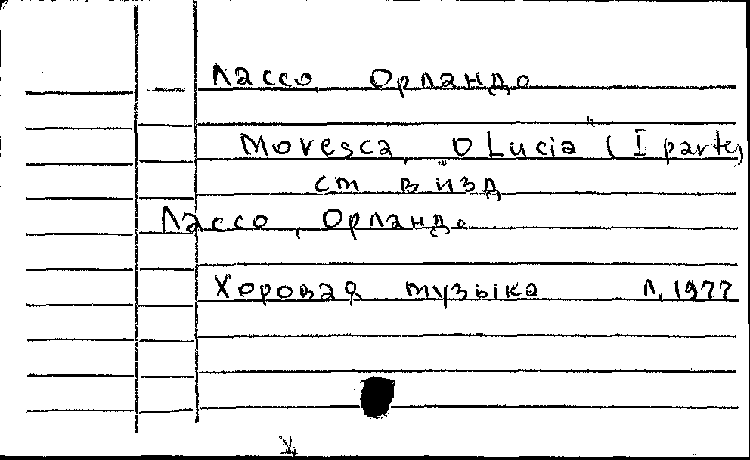 Лассо Орландо
Moresca "O Lucia" (I parte)
ст в изд
Лассо, Орландо
Хоровая музыка Л, 1977